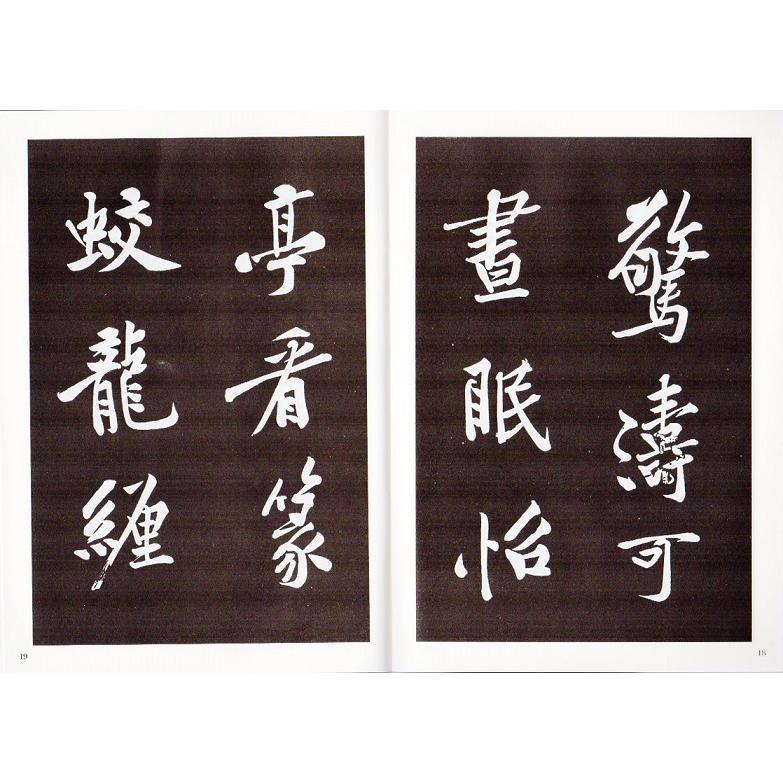 驚濤可
晝眠怡
亭看篆
蛟龍纏
18
19